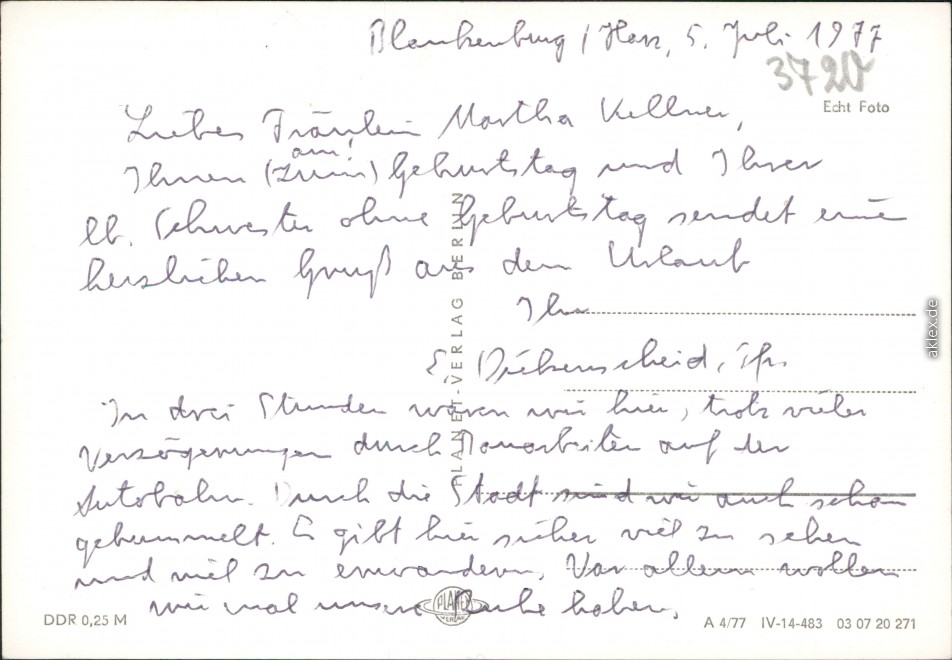 Blankenburg / Harz, 5. Juli 1977
3720
Echt Foto
Liebes Fräulein Martha Kellner,
am!
Ihnen (zum) Geburtstag und Ihrer
lb. Schwester ohne Geburtstag sendet eine
herzlichen Gruß aus dem Urlaub
Ihr
E. Dickenscheid,
In drei Stunden waren wir hier, trotz vieler
Verzögerungen durch Bauarbeiten auf der
Autobahn. Durch die Stadt sind wir auch schon
gebummelt. Es gibt hier sicher viel zu sehen
und viel zu erwandern. Vor allem wollen
wir mal unsere Ruhe haben.
PLANET-VERLAG BERLIN
PLANET
VERLAG
DDR 0,25 M
A 4/77 IV-14-483 03 07 20 271
aklex.de